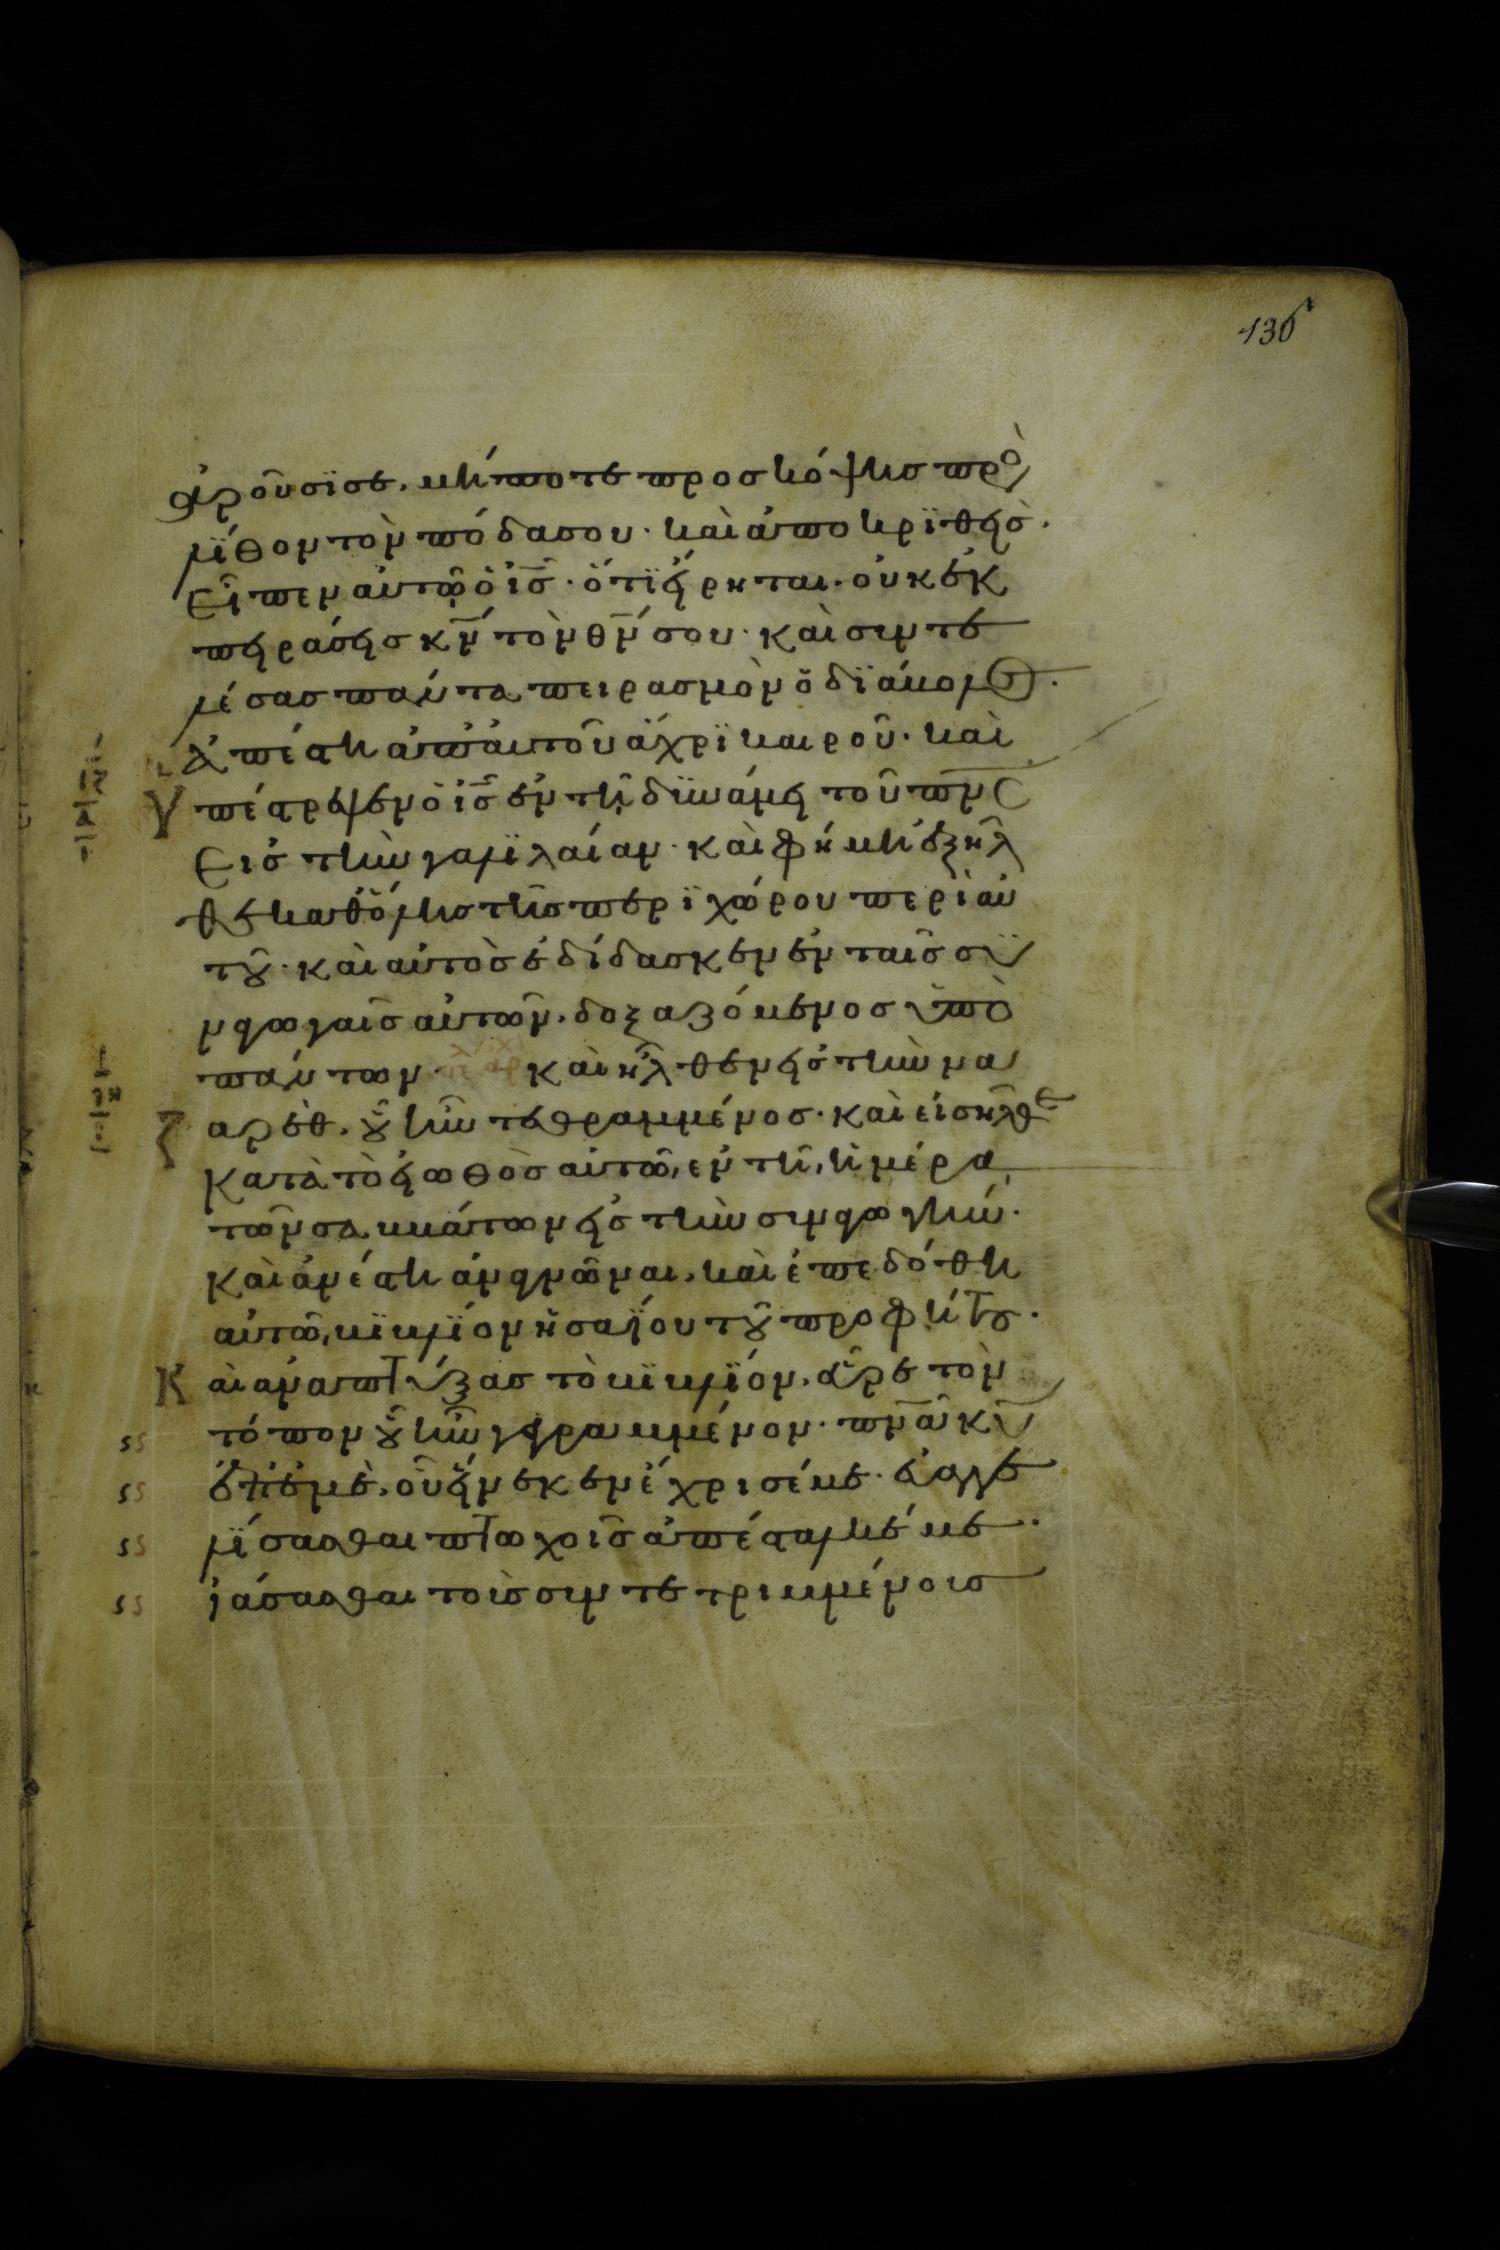 136
ἀροῦσϊ σε. μήποτε προσκόψησ πρὸ
λΐθον τὸν πόδα σου· καὶ ἀποκρϊθεὶσ·
εἶπεν αὐτῷ ὁ ι̅σ̅· ὅτϊ εἴρηται· οὐκ ἐκ
πειράσεισ κ̅ν̅ τὸν θ̅ν̅ σου· καὶ συντε
λέσασ πάντα πειρασμὸν ὁ δϊάβολοσ·
ἀπέστη ἀπ' αὐτοῦ ἄχρϊ καιροῦ· καὶ
ὑπέστρεψεν ὁ ι̅σ̅ ἐν τῇ δϋνάμει τοῦ π̅ν̅σ̅
εἰσ τὴν γαλϊλαίαν· καὶ φήμη ἐξῆλ
θε καθ' ὅλησ τῆσ περϊχώρου περὶ αὐ
τοῦ· καὶ αὐτὸσ ἐδίδασκεν ἐν ταῖσ σϋ
ναγωγαῖσ αὐτῶν. δοξαζόμενοσ ὑπὸ
πάντων· καὶ ἦλθεν εἰσ τὴν να
ζαρέθ. οὗ ἦν τεθραμμένοσ· καὶ εἰσῆλθε
κατὰ τὸ εἰωθὸσ αὐτῶ, ἐν τῆ, ἡμέρα,
τῶν σαββάτων εἰσ τὴν συναγωγήν·
καὶ ἀνέστη ἀναγνῶναι. καὶ ἐπεδόθη
αὐτῶ, βϊβλΐον ἠσαΐου τοῦ προφήτου·
Καὶ ἀναπτύξασ τὸ βϊβλΐον. εὗρε τὸν
τόπον οὗ ἦν γεγραμμένον· π̅ν̅α̅ κ̅υ̅
ἐπ' ἐμὲ. οὗ εἵνεκεν ἔχρισέ με· εὐαγγε
λΐσασθαι πτωχοῖσ ἀπέσταλκέ με·
ἰάσασθαι τοὺσ συντετριμμένουσ